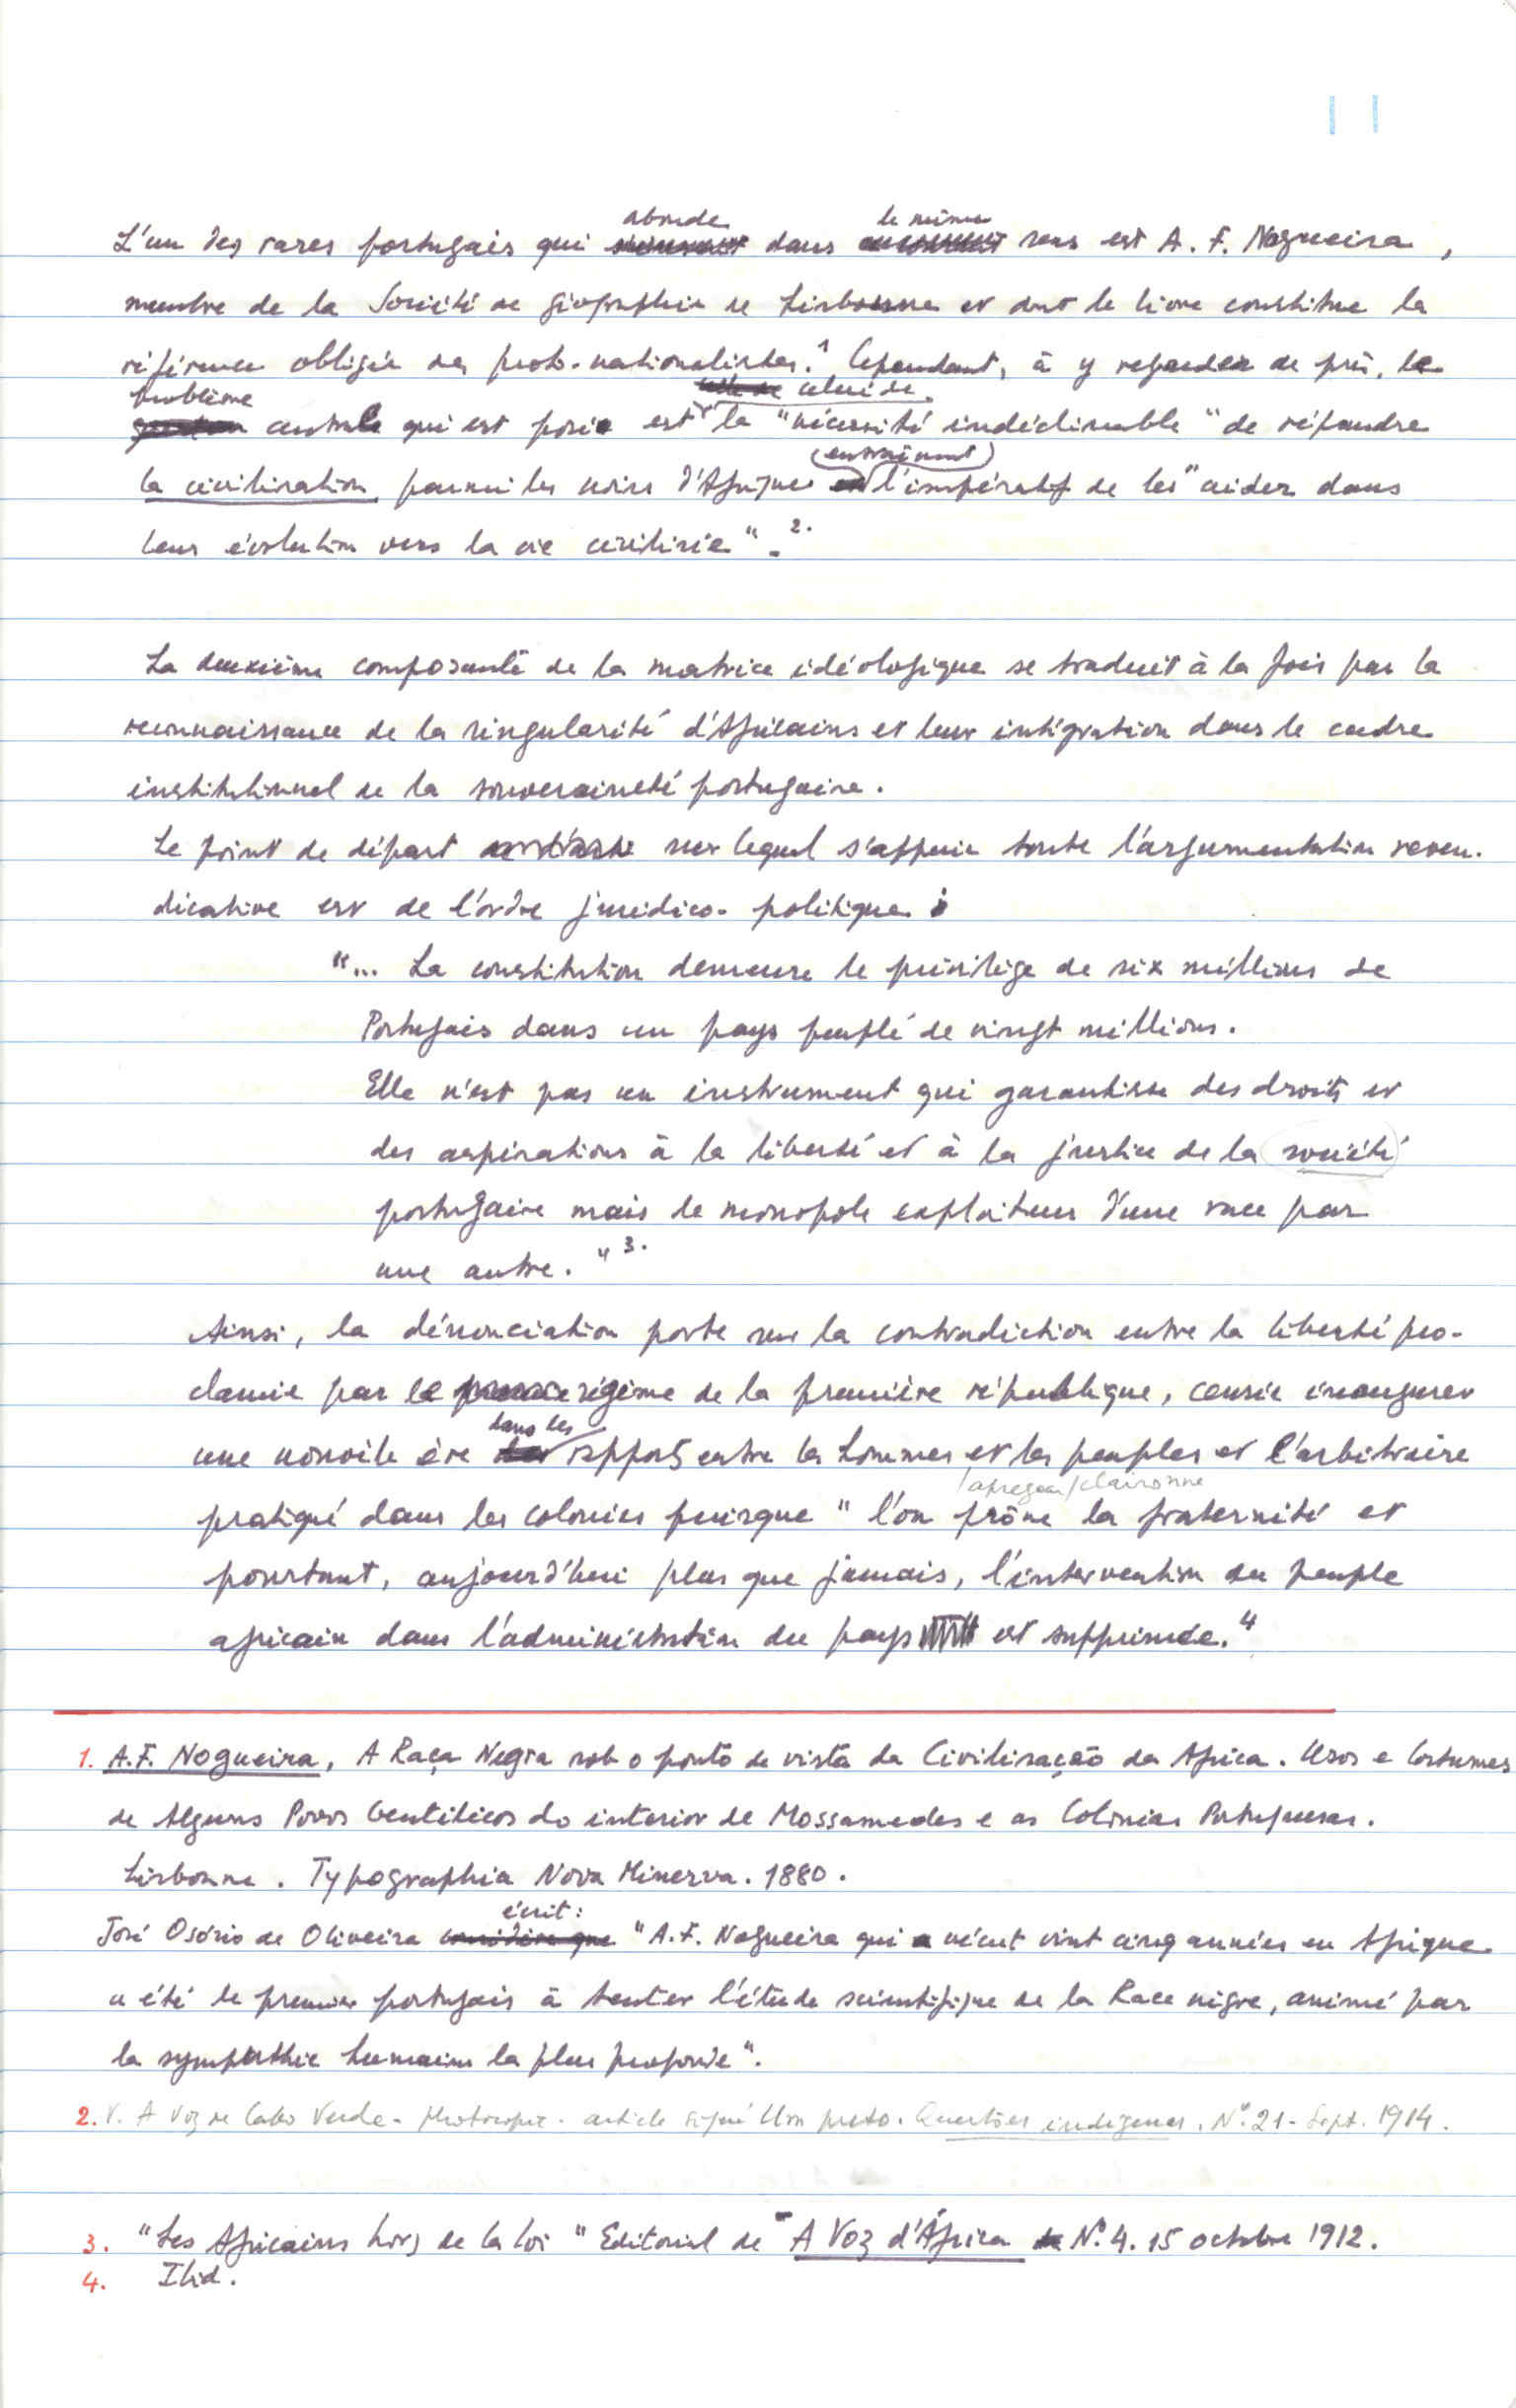 11
L'un des rares portugais qui abonde dans le même sens est A. F. Nogueira,
membre de la Société de géographie de Lisbonne et dont le livre constitue la
référence obligée des proto-nationalistes.¹ Cependant, à y regarder de près, le
problème central qui est posé est celui de la "nécessité indéclinable" de répandre
la civilisation parmi les noirs d'Afrique (entraînant) l'impératif de les "aider dans
leur évolution vers la vie civilisée".².
La deuxième composante de la matrice idéologique se traduit à la fois par la
reconnaissance de la singularité d'Africains et leur intégration dans le cadre
institutionnel de la souveraineté portugaise.
Le point de départ sur lequel s'appuie toute l'argumentation reven-
dicative est de l'ordre juridico-politique :
"... La constitution demeure le privilège de six millions de
Portugais dans un pays peuplé de vingt millions.
Elle n'est pas un instrument qui garantisse des droits et
des aspirations à la liberté et à la justice de la (société)
portugaise mais le monopole exploiteur d'une race par
une autre."³.
Ainsi, la dénonciation porte sur la contradiction entre la liberté pro-
clamée par le régime de la première république, censée inaugurer
une nouvelle ère dans les rapports entre les hommes et les peuples et l'arbitraire
/apregoa/claironne
pratiqué dans les colonies puisque "l'on prône la fraternité et
pourtant, aujourd'hui plus que jamais, l'intervention du peuple
africain dans l'administration du pays est supprimée.⁴
1. A.F. Nogueira, A Raça Negra sob o ponto de vista da Civilisação da Africa. Usos e Costumes
de Alguns Povos Gentilicos do interior de Mossamedes e as Colonias Portuguesas.
Lisbonne. Typographia Nova Minerva. 1880.
José Osório de Oliveira écrit: "A.F. Nogueira qui vécut vint cinq années en Afrique
a été le premier portugais à tenter l'étude scientifique de la Race nègre, animé par
la sympathie humaine la plus profonde".
2. V. A Voz de Cabo Verde - Photocopie - article signé Um preto. Questões indigenas. Nº 21 - Sept. 1914.
3. "Les Africains hors de la loi" Editorial de A Voz d'África Nº 4. 15 octobre 1912.
4. Ibid.